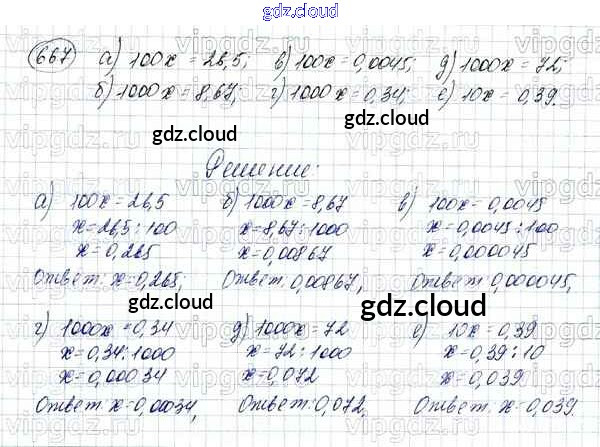 gdz.cloud
667 а) 100x = 26,5; в) 100x = 0,0045; д) 1000x = 72;
б) 1000x = 8,67; г) 1000x = 0,34; е) 10x = 0,39.
gdz.cloud gdz.cloud
Решение:
а) 100x = 26,5 б) 1000x = 8,67 в) 100x = 0,0045
x = 26,5 : 100 x = 8,67 : 1000 x = 0,0045 : 100
x = 0,265 x = 0,00867 x = 0,000045
Ответ: x = 0,265; Ответ: 0,00867, Ответ: 0,000045,
gdz.cloud gdz.cloud
г) 1000x = 0,34 д) 1000x = 72 е) 10x = 0,39
x = 0,34 : 1000 x = 72 : 1000 x = 0,39 : 10
x = 0,00034 x = 0,072 x = 0,039
Ответ: x = 0,00034, Ответ: 0,072, Ответ: x = 0,039.
gdz.cloud gdz.cloud